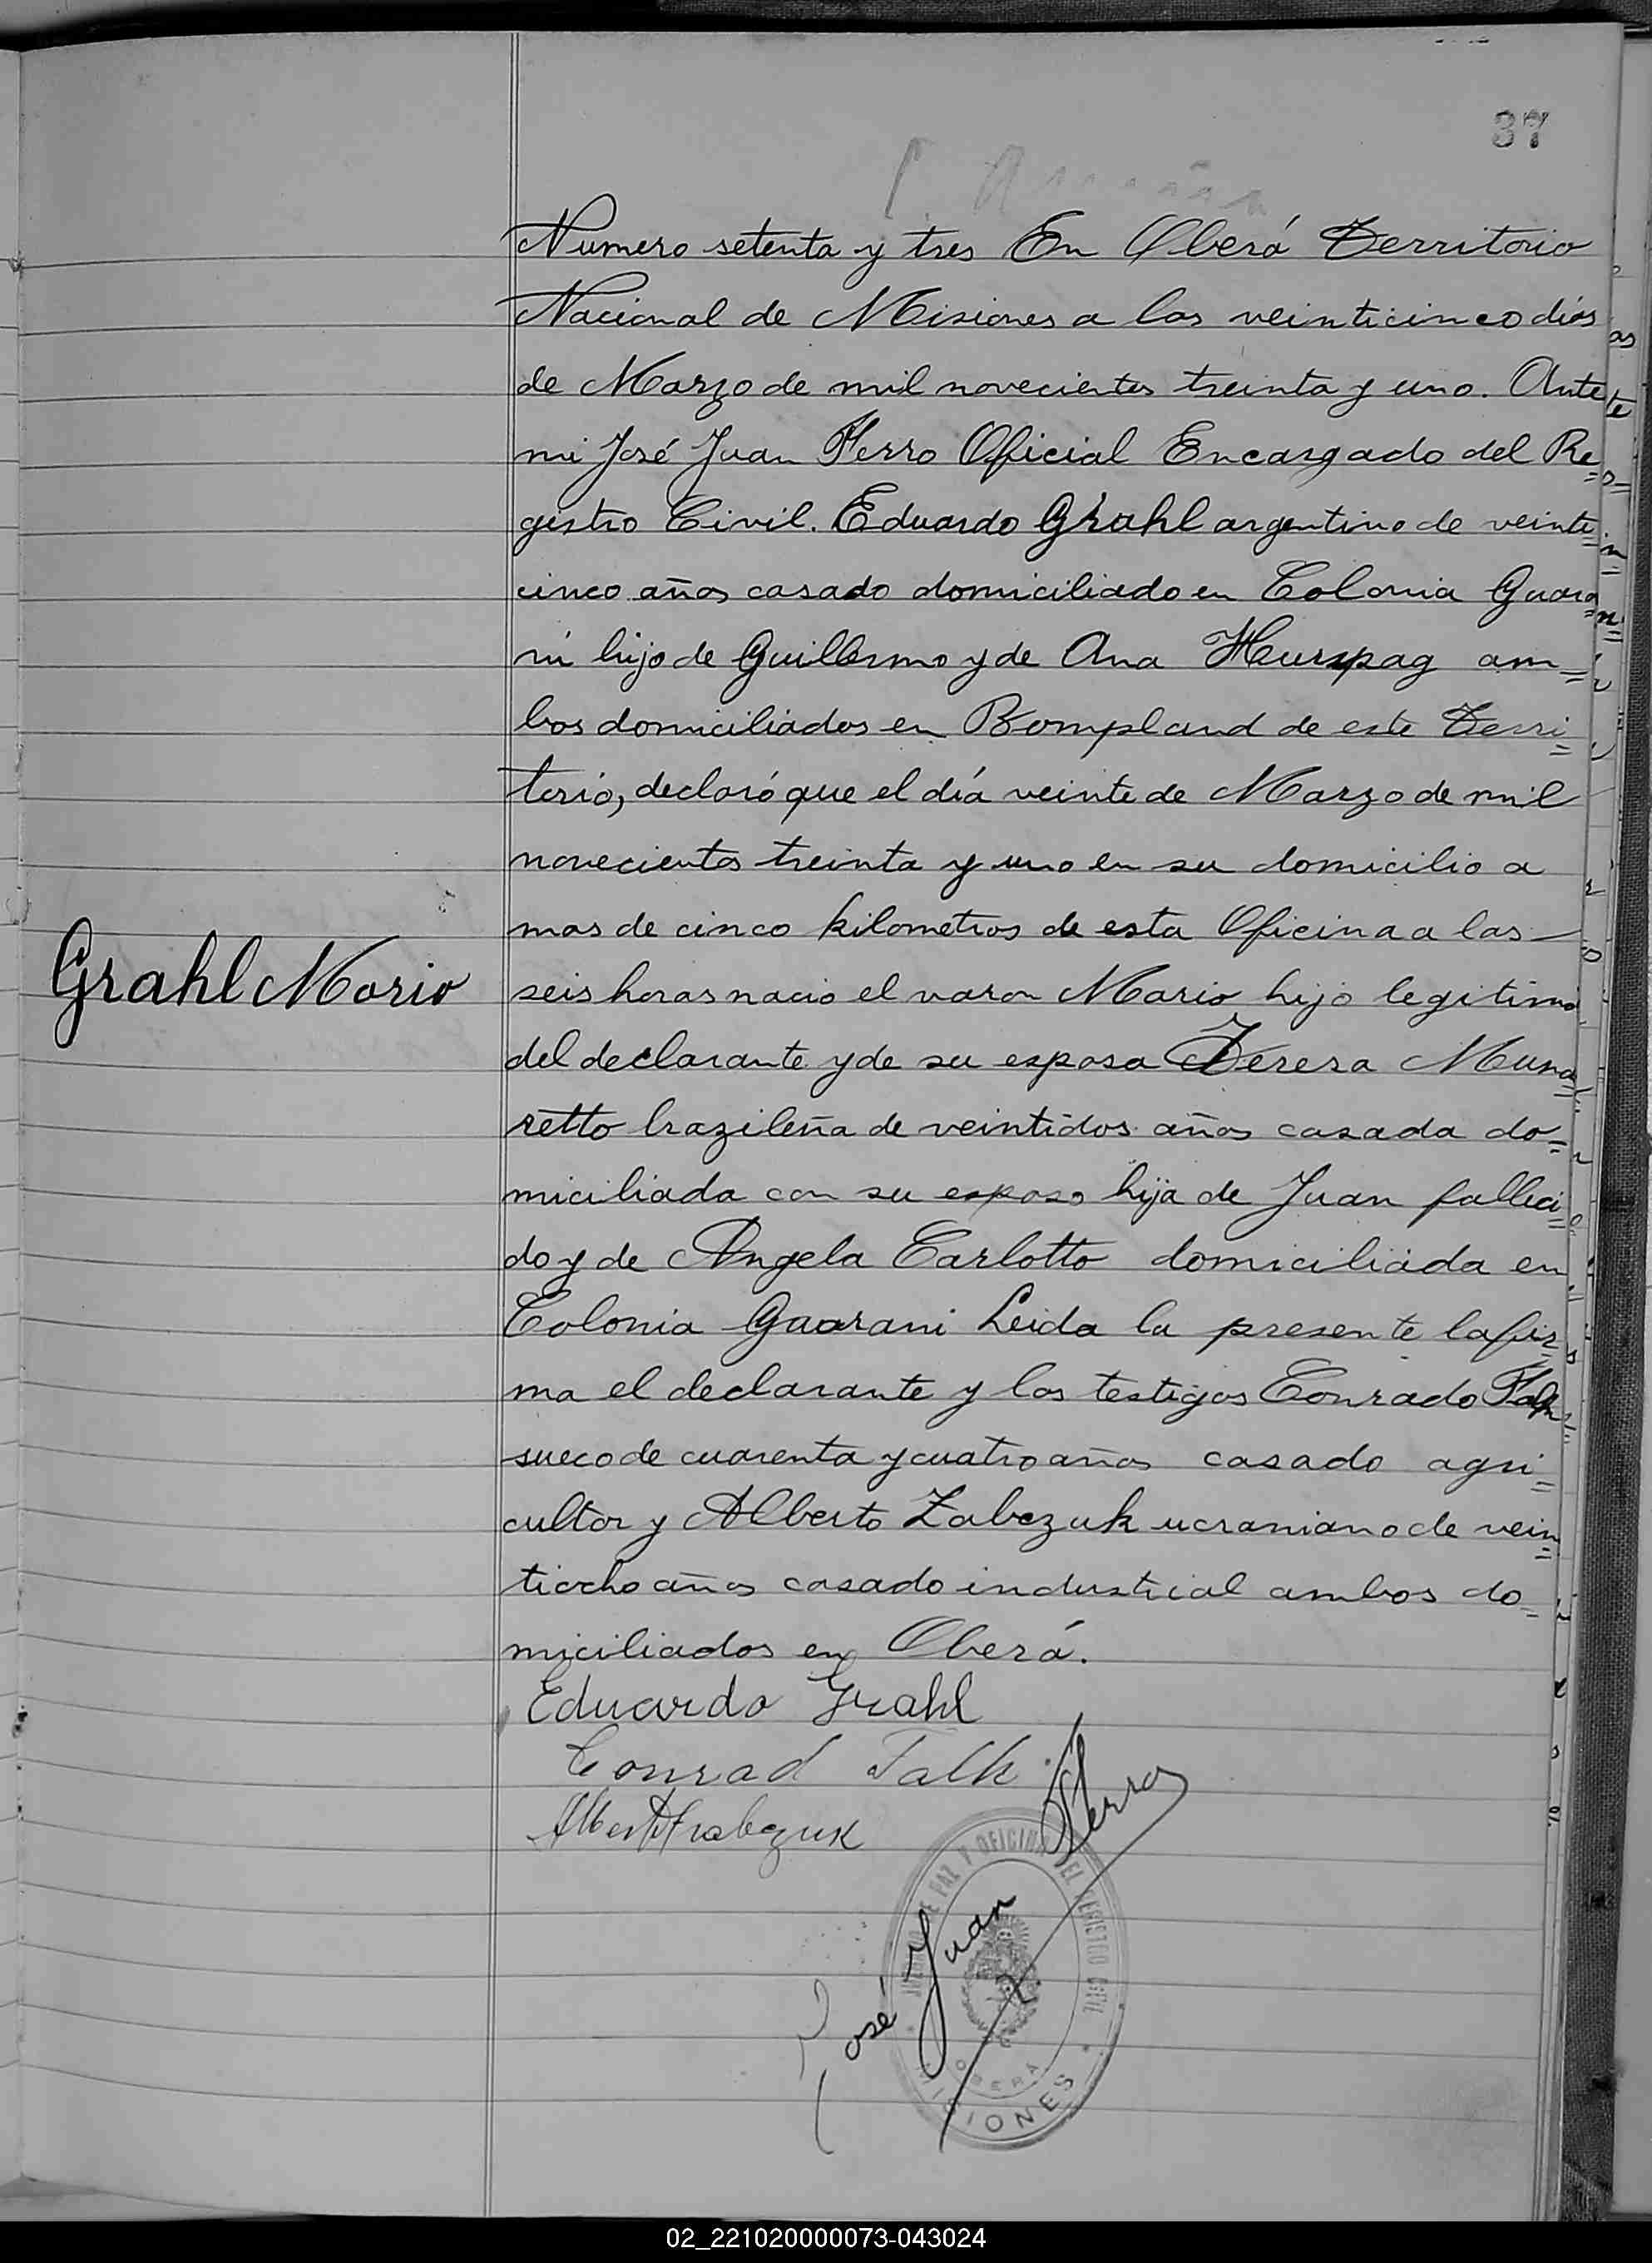 37
Numero setenta y tres En Oberá Territorio
Nacional de Misiones a los veinticinco días
de Marzo de mil novecientos treinta y uno. Ante
mi José Juan Ferro Oficial Encargado del Re=
gistro Civil. Eduardo Grahl argentino de veinti=
cinco años casado domiciliado en Colonia Guara=
ni hijo de Guillermo y de Ana am=
bos domiciliados en Bompland de este Terri=
torio, declaró que el día veinte de Marzo de mil
novecientos treinta y uno en su domicilio a
mas de cinco kilometros de esta Oficina a las
seis horas nacio el varon Mario hijo legitimo
Grahl Mario
del declarante y de su esposa Teresa Muna=
retto brazileña de veintidos años casada do=
miciliada con su esposo hija de Juan falleci=
do y de Angela Carlotto domiciliada en
Colonia Guarani Leida la presente la fir=
ma el declarante y los testigos Conrado Falk
sueco de cuarenta y cuatro años casado agri=
cultor y Alberto Zabczuk ucraniano de vein=
tiocho años casado industrial ambos do=
miciliados en Oberá.
Eduardo Grahl
Conrad Falk
José Juan Ferro
JUZGADO DE PAZ Y OFICINA DEL REGISTRO CIVIL
OBERÁ
MISIONES
02_221020000073-043024